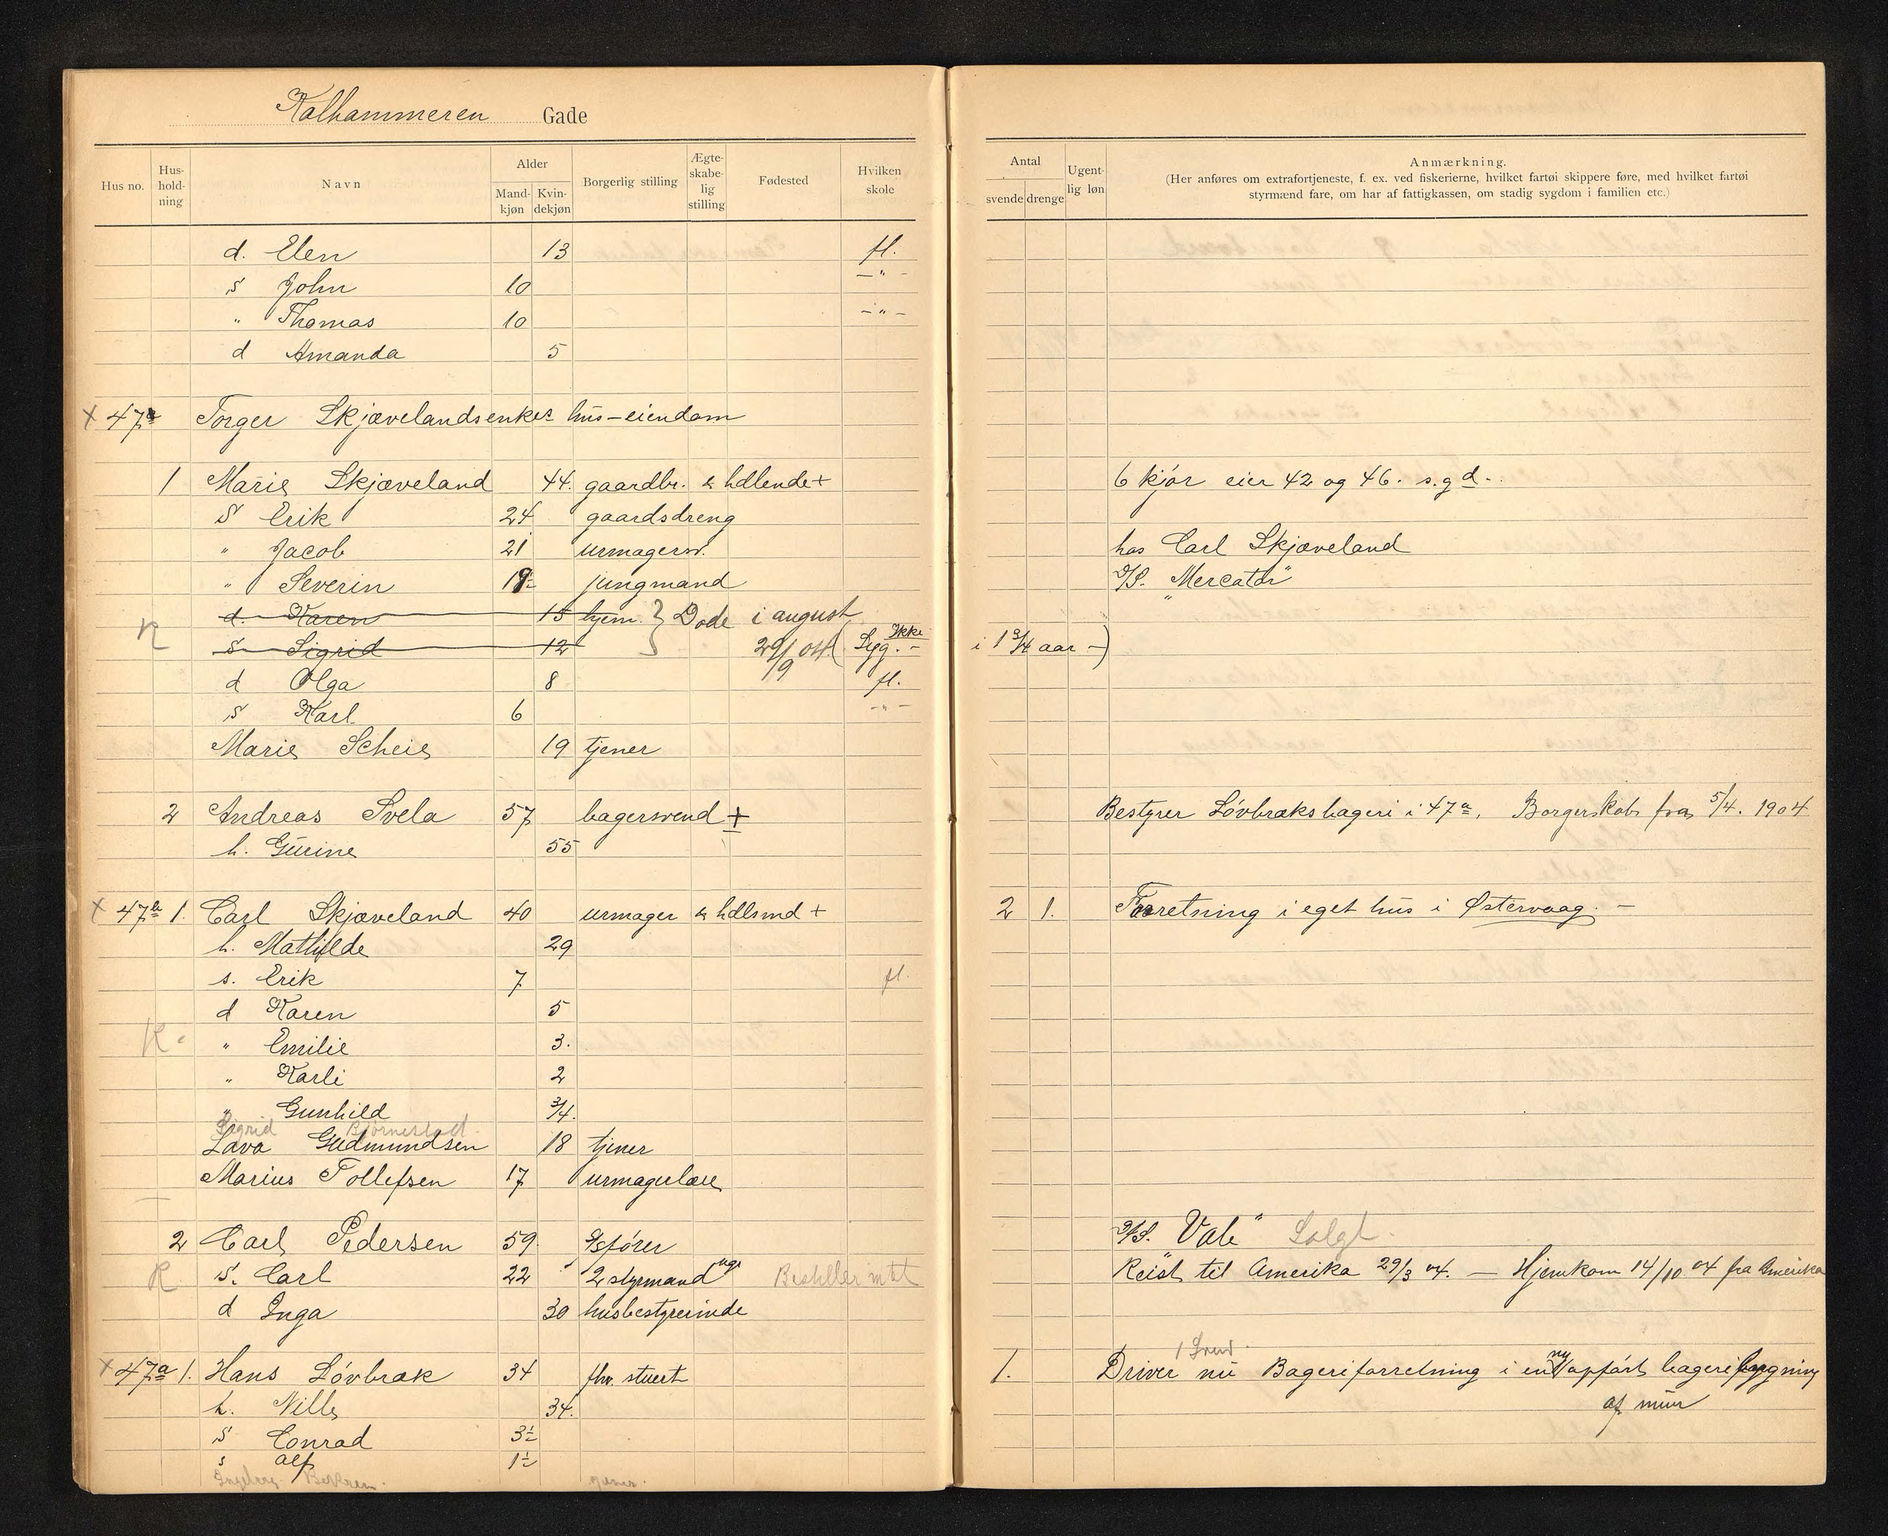 Kalhammeren Gade
Hus no. Hus-hold-ning Navn Alder Mand-kjøn Kvin-dekjøn Borgerlig stilling Ægte-skabe-lig stilling Fødested Hvilken skole
Antal svende drenge Ugent-lig løn Anmærkning.
(Her anføres om extrafortjeneste, f. ex. ved fiskerierne, hvilket fartøi skippere føre, med hvilket fartøi
styrmænd fare, om har af fattigkassen, om stadig sygdom i familien etc.)
d. Elen 13 fl.
s John 10 -"-
" Thomas 10 -"-
d Amanda 5
x 47a Torger Skjævelandsenkes hus-eiendom
1 Marie Skjæveland 44. gaardbr. & hdlende + 6 kjør eier 42 og 46. s.g d..
S Erik 24 gaardsdreng
" Jacob 21 urmagersv. hos Carl Skjæveland
" Severin 19 jungmand D/S. "Mercator"
d. Karen 15 hjem. } Døde i august
R s Sigrid 12 29/9 04 ( Syg. Ikke - i 1 3/4 aar -)
d Olga 8 fl.
s Karl 6 -"-
Marie Scheie 19 tjener
2 Andreas Svela 57 bagersvend + Bestyrer Løvbræks bageri i 47a. Borgerskab fra 5/4. 1904
h. Gurine 55
x 47b 1. Carl Skjæveland 40 urmager & hdlsmd + 2 1. Forretning i eget hus i Østervaag. -
h. Mathilde 29
s. Erik 7 fl.
d Karen 5
R " Emilie 3.
" Karli 2
" Gunhild 3/4.
Sigrid Bjørnestad.
Lava Gudmundsen 18 tjener
Marius Tollefsen 17 urmagerlære
2 Carl Pedersen 59. S/sfører D/S. "Vale" Solgt.
R S. Carl 22 2 styrmand Reist til Amerika 29/3 04. - Hjemkom 14/10 04 fra Amerika
d Inga 30 husbestyrerinde
1 Svend.
x 47a 1. Hans Løvbræk 34 fhv. stuert 1. Driver nu Bageriforretning i en ny opført bageribygning
af mur
h. Nille 34.
s Conrad 3½
s Alf 1½
Ingeborg tjener.